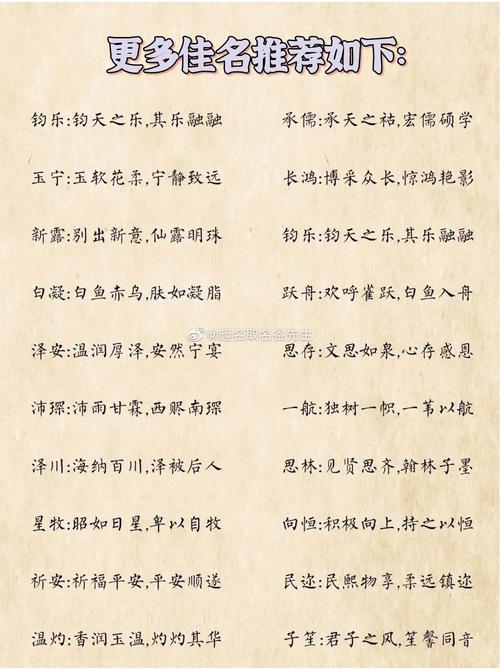 更多佳名推荐如下:
钧乐:钧天之乐,其乐融融
承儒:承天之祜,宏儒硕学
玉宁:玉软花柔,宁静致远
长鸿:博采众长,惊鸿艳影
新露:别出新意,仙露明珠
钧乐:钧天之乐,其乐融融
白凝:白鱼赤乌,肤如凝脂
跃舟:欢呼雀跃,白鱼入舟
@起名取名谷先生
泽安:温润厚泽,安然宁宴
思存:文思如泉,心存感恩
沛琛:沛雨甘霖,西赆南琛
一航:独树一帜,一苇以航
泽川:海纳百川,泽被后人
思林:见贤思齐,翰林子墨
星牧:昭如日星,卑以自牧
向恒:积极向上,持之以恒
祈安:祈福平安,平安顺遂
民迩:民熙物享,柔远镇迩
温灼:香润玉温,灼灼其华
子笙:君子之风,笙馨同音